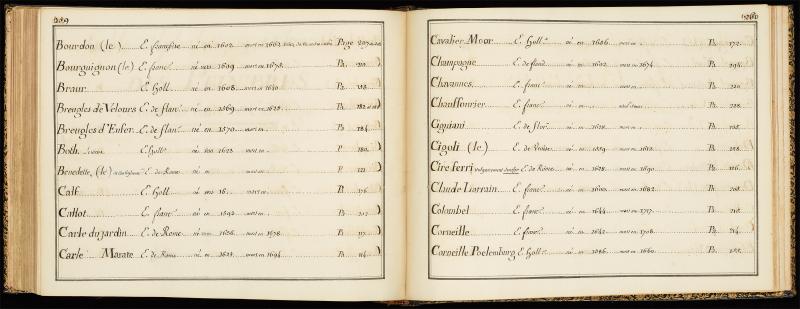 Bourdon (le) E. françoise né en 1602 mort en 1662 Page
Bourguignon (le) E. franc. né en 1609 mort en 1673. P.
Braur E. Holl. né en 1608 mort en 1640 P.
Breugles de Velours E. de flan. né en 1569 mort en 1625. P. 182
Breugles d'Enfer E. de flan. né en 1570 mort en P. 184
Both E. Holl. né en 1623 mort en P. 180
Benedette, (le) E. de Rome né en mort en P. 121
Calf E. Holl. né en 16. mort en P. 176
Callot E. franc. né en 1592 mort en P. 217
Carle du jardin E. de Rome né en mort en 1678 P. 117
Carle Marate E. de Rome né en 1625 mort en 1694 P. 114
Cavalier Moor E. Holl. né en 1606 mort en P. 172
Champagne E. de fland né en 1602 mort en 1674 P.
Chavannes E. franc. né en mort en P. 220
Chauffourier E. franc. né en P. 228
Cigniani E. de flor. né en 1628 mort en P.
Cigoli (le) E. de né en 1559 mort en 1613 P.
Cire ferri E. de Rome né en 1628 mort en 1690 P. 116
Claude Lorrain E. franc. né en 1600 mort en 1682 P. 208
Colombel E. franc. né en 1644 mort en 1717 P. 218
Corneille E. franc. né en 1642 mort en 1708 P. 214
Corneille Poelemburg E. Holl. né en 1586 mort en 1660 P.